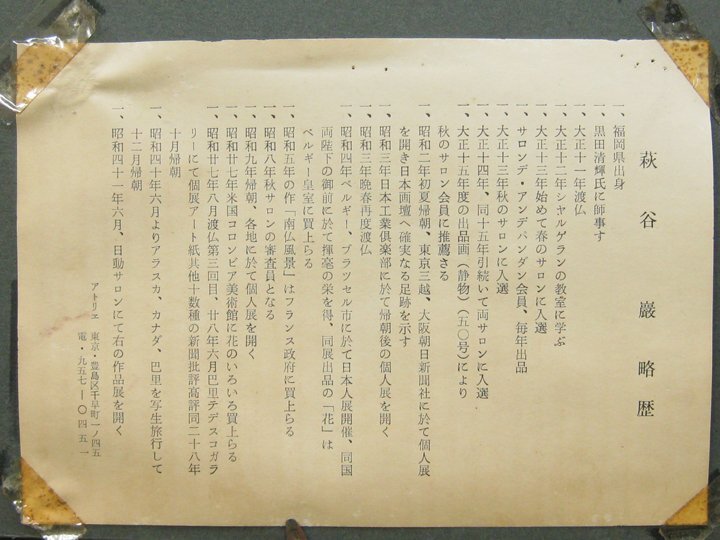 萩谷巌略歴
一、福岡県出身
一、黒田清輝氏に師事す
一、大正十一年渡仏
一、大正十二年シャルゲランの教室に学ぶ
一、大正十三年始めて春のサロンに入選
一、サロンデ・アンデパンダン会員、毎年出品
一、大正十三年秋のサロンに入選
一、大正十四年、同十五年引続いて両サロンに入選
一、大正十五年度の出品画《静物》(五〇号)により
秋のサロン会員に推薦さる
一、昭和二年初夏帰朝、東京三越、大阪朝日新聞社に於て個人展
を開き日本画壇へ確実なる足跡を示す
一、昭和三年日本工業倶楽部に於て帰朝後の個人展を開く
一、昭和三年晩春再度渡仏
一、昭和四年ベルギー、ブラッセル市に於て日本人展開催、同国
両陛下の御前に於て揮毫の栄を得、同展出品の「花」は
ベルギー皇室に買上らる
一、昭和五年の作「南仏風景」はフランス政府に買上らる
一、昭和八年秋サロンの審査員となる
一、昭和九年帰朝、各地に於て個人展を開く
一、昭和廿七年米国コロンビア美術館に花のいろいろ買上らる
一、昭和廿七年八月渡仏第三回目、廿八年六月巴里テデスコガラ
リーにて個展アート紙共他十数種の新聞批評高評同二十八年
十月帰朝
一、昭和四十年六月よりアラスカ、カナダ、巴里を写生旅行して
十二月帰朝
一、昭和四十一年六月、日動サロンにて右の作品展を開く
アトリエ 東京・豊島区千早町一ノ四五
電・九五七ー〇四五一